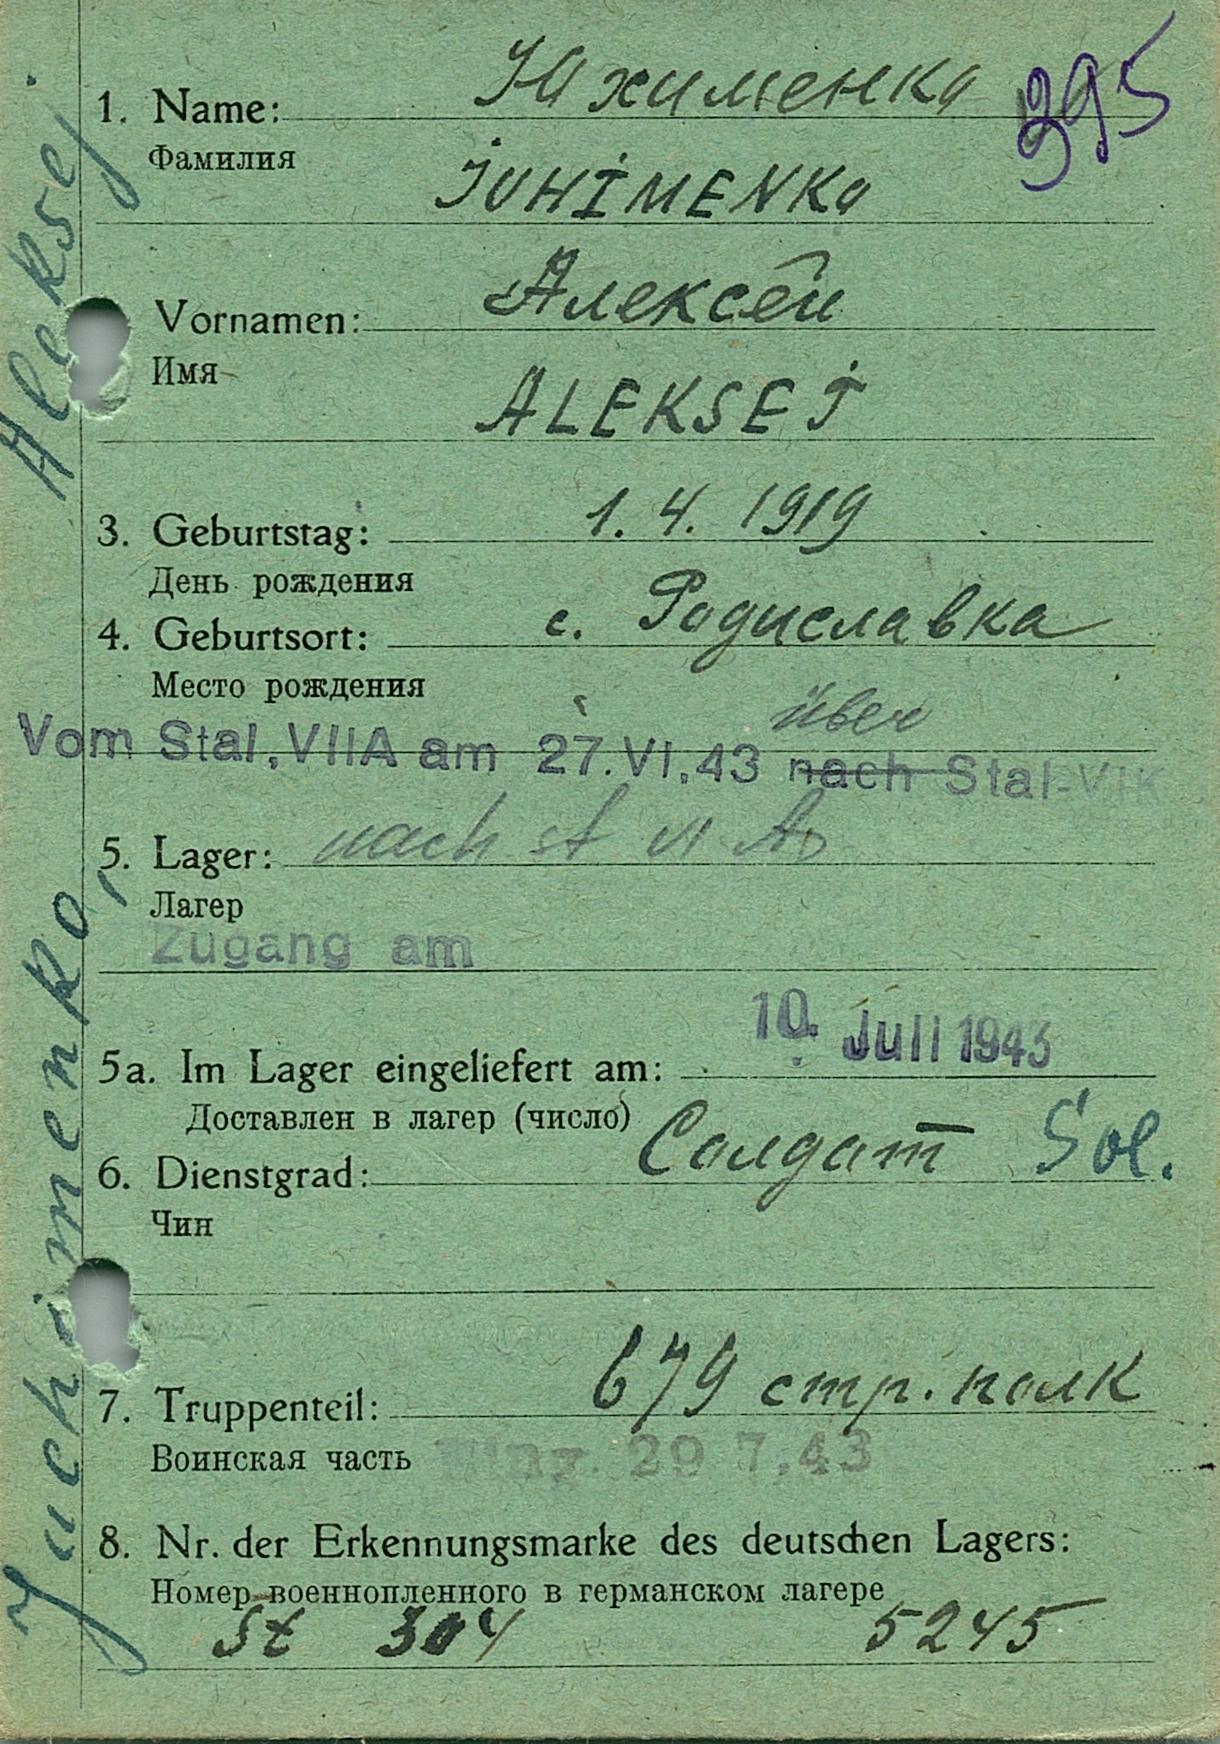 Юхименка
395
1. Name:
Фамилия
JUHIMENKA
Vornamen: Алексей
Имя
ALEKSEJ
3. Geburtstag: 1. 4. 1919
День рождения
4. Geburtsort: с. Родиславка
Место рождения
über
Vom Stal. VIIA am 27. VI. 43 nach Stal-VIK
5. Lager: nach St VI A
Лагер
Zugang am
10. Juli 1943
5a. Im Lager eingeliefert am:
Доставлен в лагер (число)
6. Dienstgrad: Солдат Sol.
Чин
7. Truppenteil: 679 стр. полк
Воинская часть
29 7. 43
8. Nr. der Erkennungsmarke des deutschen Lagers:
Номер военнопленного в германском лагере
St 304 5245
Juchimenko, Aleksej